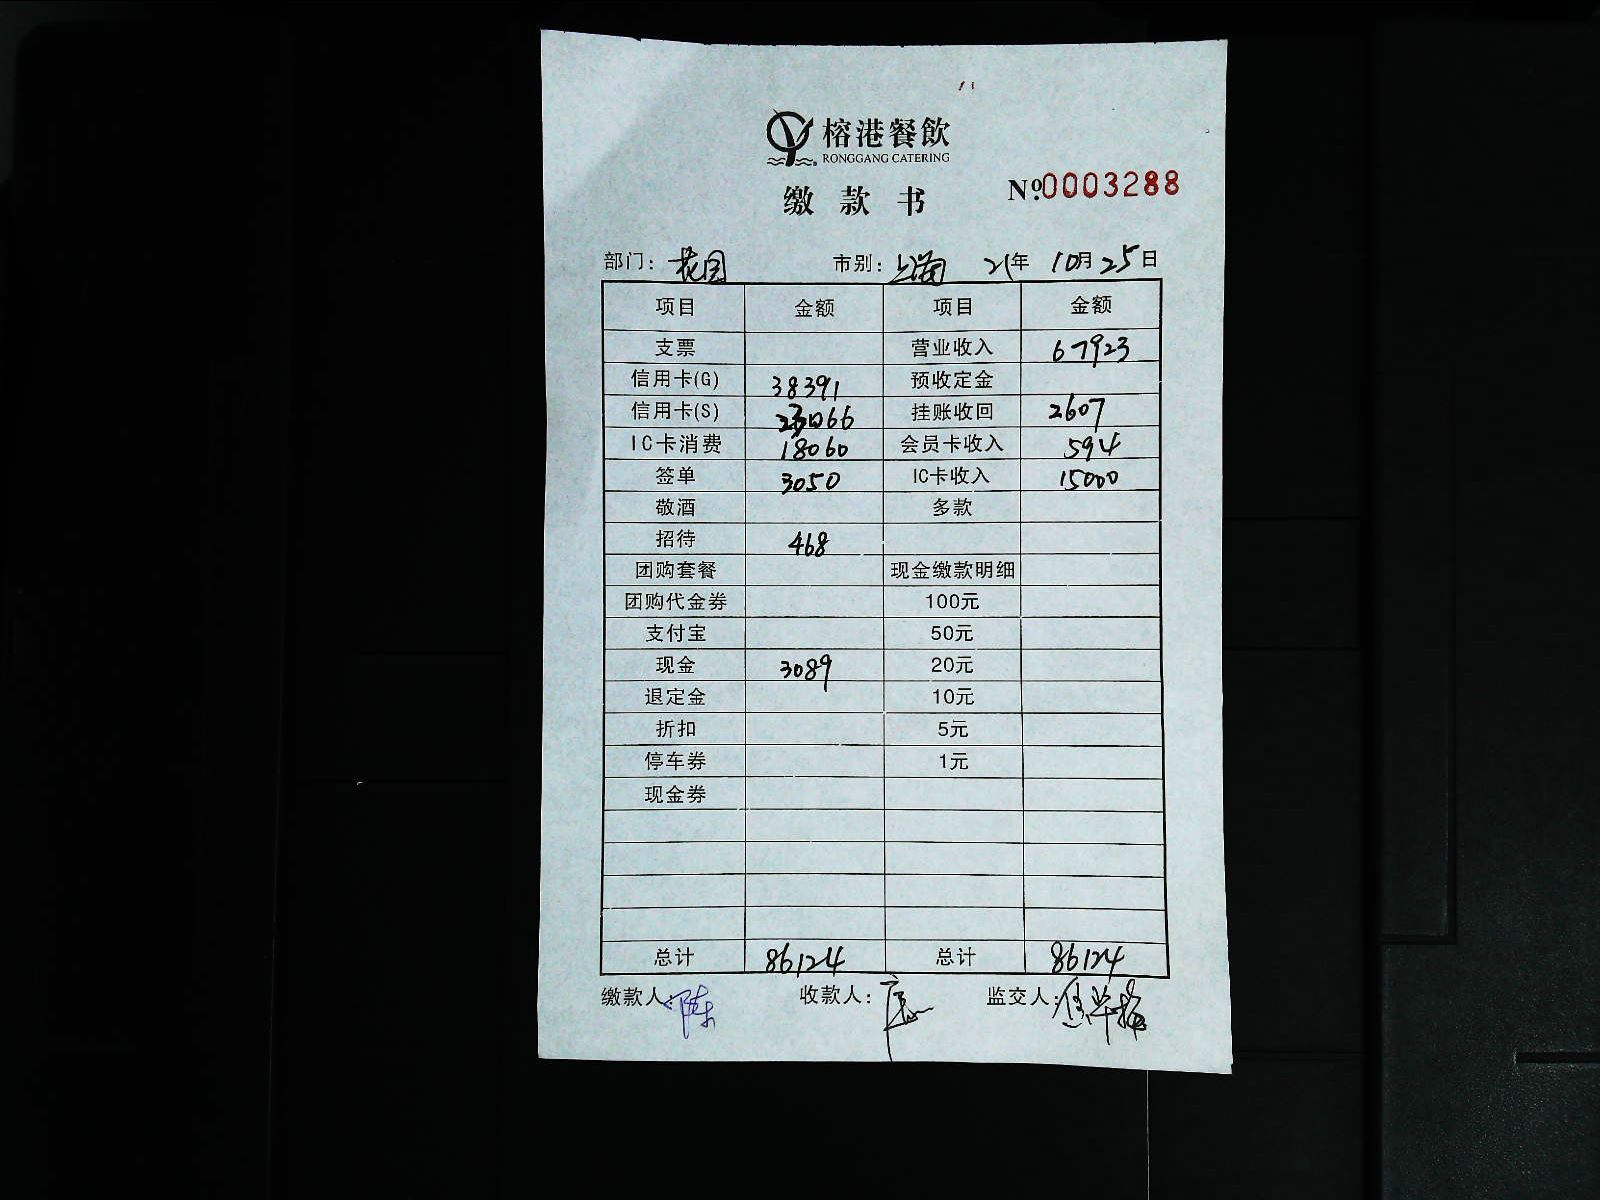 榕港餐飲
RONGGANG CATERING
缴款书 №0003288
部门：花园 市别：上海 21年 10月25日
项目 金额 项目 金额
支票 营业收入 67923
信用卡(G) 38391 预收定金
信用卡(S) 23066 挂账收回 2607
IC卡消费 18060 会员卡收入 594
签单 3050 IC卡收入 15000
敬酒 多款
招待 468
团购套餐 现金缴款明细
团购代金券 100元
支付宝 50元
现金 3089 20元
退定金 10元
折扣 5元
停车券 1元
现金券
总计 86124 总计 86124
缴款人：陈 收款人： 监交人：